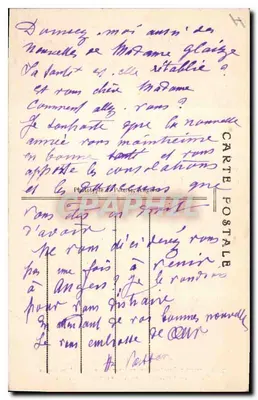 Donnez moi aussi des
nouvelles de Madame Glaizge
Sa santé est elle rétablie ?
Et vous chère Madame
Comment allez vous ?
Je souhaite que la nouvelle
année vous maintienne
en bonne santé et vous
apporte les consolations
et les que
vous
d'avoir
ne vous déciderez vous
pas une fois à venir
à Angers ? Je le voudrais
pour vous distraire
En attendant de vos bonnes nouvelles
Je vous embrasse de cœur
CARTE POSTALE
CPAPHIL